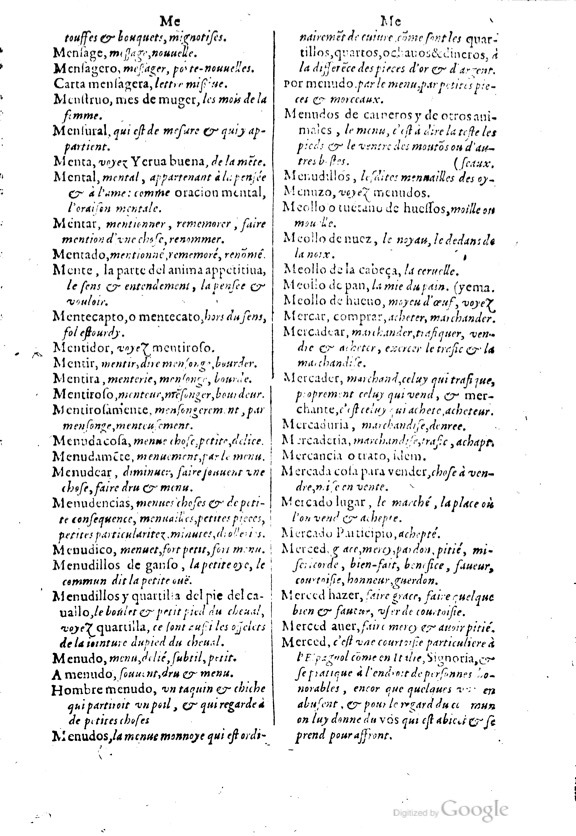 Me
touffes & bouquets, mignotises.
Mensage, message, nouuelle.
Mensagero, messager, porte-nouuelles.
Carta mensagera, lettre missiue.
Menstruo, mes de muger, les mois de la
femme.
Mensural, qui est de mesure & qui y ap-
partient.
Menta, voyez Yerua buena, de la mẽte.
Mental, mental, appartenant à la pensée
& à l'ame: comme oracion mental,
l'oraison mentale.
Mentar, mentionner, rememorer, faire
mention d'vne chose, renommer.
Mentado, mentionné, rememoré, renõmé.
Mente, la parte del anima appetitiua,
le sens & entendement, la pensée &
vouloir.
Mentecapto, o mentecato, hors du sens,
fol estourdy.
Mentidor, voyez mentiroso.
Mentir, mentir, dire mensonge, bourder.
Mentira, menterie, mensonge, bourde.
Mentiroso, menteur, mẽsonger, bourdeur.
Mentirosamente, mensongerement, par
mensonge, menteusement.
Menuda cosa, menue chose, petite, delice.
Menudamẽte, menuement, par le menu.
Menudear, diminuer, faire souuent vne
chose, faire dru & menu.
Menudencias, menues choses & de peti-
te consequence, menuailles, petites pieces,
petites particularitez, minutes, drolleries.
Menudico, menuet, fort petit, fort menu.
Menudillos de ganso, la petite oye, le
commun dit la petite ouë.
Menudillos y quartilla del pie del ca-
uallo, le boulet & petit pied du cheual,
voyez quartilla, ce sont aussi les osselets
de la iointure du pied du cheual.
Menudo, menu, delié, subtil, petit.
A menudo, souuent, dru & menu.
Hombre menudo, vn taquin & chiche
qui partiroit vn poil, & qui regarde à
de petites choses
Menudos, la menue monnoye qui est ordi-
Me
nairemẽt de cuiure, cõme sont les quar-
tillos, quartos, ochauos & dineros, à
la differẽce des pieces d'or & d'argent.
Por menudo, par le menu, par petites pie-
ces & morceaux.
Menudos de carneros y de otros ani-
males, le menu, c'est à dire la teste les
pieds & le ventre des moutõs ou d'au-
tres bestes. (seaux.
Menudillos, lesdites menuailles des oy-
Menuzo, voyez menudos.
Meollo o tuetano de huessos, moille ou
mouelle.
Meollo de nuez, le noyau, le dedans de
la noix.
Meollo de la cabeça, la ceruelle.
Meollo de pan, la mie du pain. (yema.
Meollo de hueuo, moyeu d'œuf, voyez
Mercar, comprar, acheter, marchander.
Mercadear, marchander, trafiquer, ven-
dre & acheter, exercer le trafic & la
marchandise.
Mercader, marchand, celuy qui trafique,
proprement celuy qui vend, & mer-
chante, c'est celuy qui achete, acheteur.
Mercaduria, marchandise, denree.
Mercaderia, marchandise, trafic, achapt.
Mercancia o trato, idem.
Mercada cosa para vender, chose à ven-
dre, mise en vente.
Mercado lugar, le marché, la place où
l'on vend & achepte.
Mercado Participio, achepté.
Merced, grace, mercy, pardon, pitié, mi-
sericorde, bien-fait, benefice, faueur,
courtoisie, honneur, guerdon.
Merced hazer, faire grace, faire quelque
bien & faueur, vser de courtoisie.
Merced auer, faire mercy & auoir pitié.
Merced, c'est vne courtoisie particuliere à
l'Espagnol cõme en Italie, Signoria, &
se pratique à l'endroit de personnes ho-
norables, encor que quelques vns en
abusent, & pour le regard du commun
on luy donne du vòs qui est abiect & se
prend pour affront.
Digitized by Google